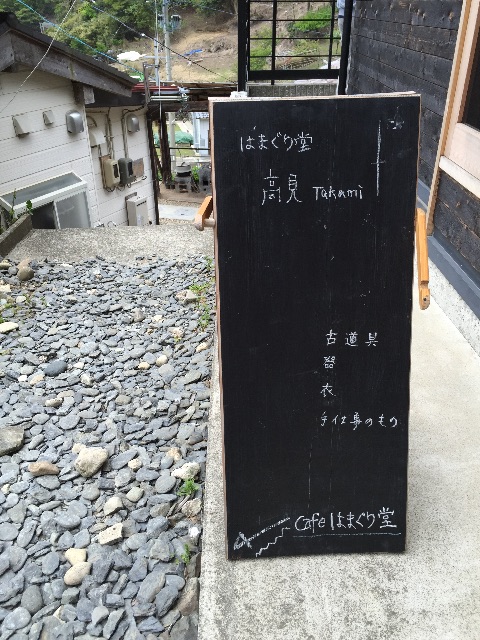 はまぐり堂
高見 Takami
古道具
器
衣
手仕事のもの
Cafe はまぐり堂